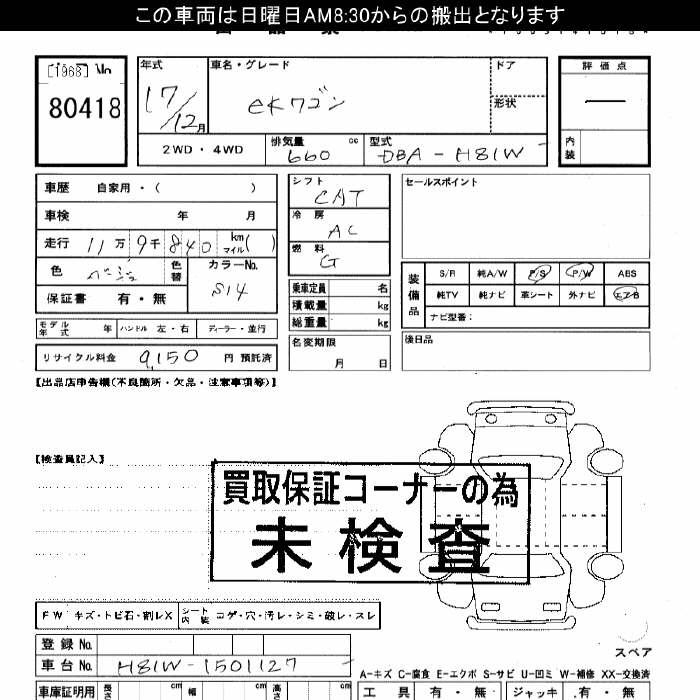 この車両は日曜日AM8:30からの搬出となります
[1968] No
80418
年式
17/12月
車名・グレード
eKワゴン
ドア
形状
評価点
内装
2WD・4WD
排気量 660 cc
型式 DBA-H81W
車歴 自家用・( )
車検 年 月
走行 11万9千840 km マイル( )
色 ベージュ 色替
カラーNo. S14
保証書 有・無
シフト CAT
冷房 AC
燃料 G
乗車定員 名
積載量 kg
総重量 kg
名変期限
月 日
セールスポイント
装備品
S/R 純A/W P/S P/W ABS
純TV 純ナビ 革シート 外ナビ エアB
ナビ型番:
後日品
モデル年式 年 ハンドル 左・右 ディーラー・並行
リサイクル料金 9,150 円 預託済
【出品店申告欄(不良箇所・欠品・注意事項等)】
【検査員記入】
買取保証コーナーの為
未検査
FW キズ・トビ石・割レX シート内装 コゲ・穴・汚レ・シミ・破レ・スレ
登録No.
車台No. H81W-1501127
スペア
A-キズ C-腐食 E-エクボ S-サビ U-凹ミ W-補修 XX-交換済
車庫証明用 長さ cm 幅 cm 高さ cm
工具 有・無 ジャッキ 有・無